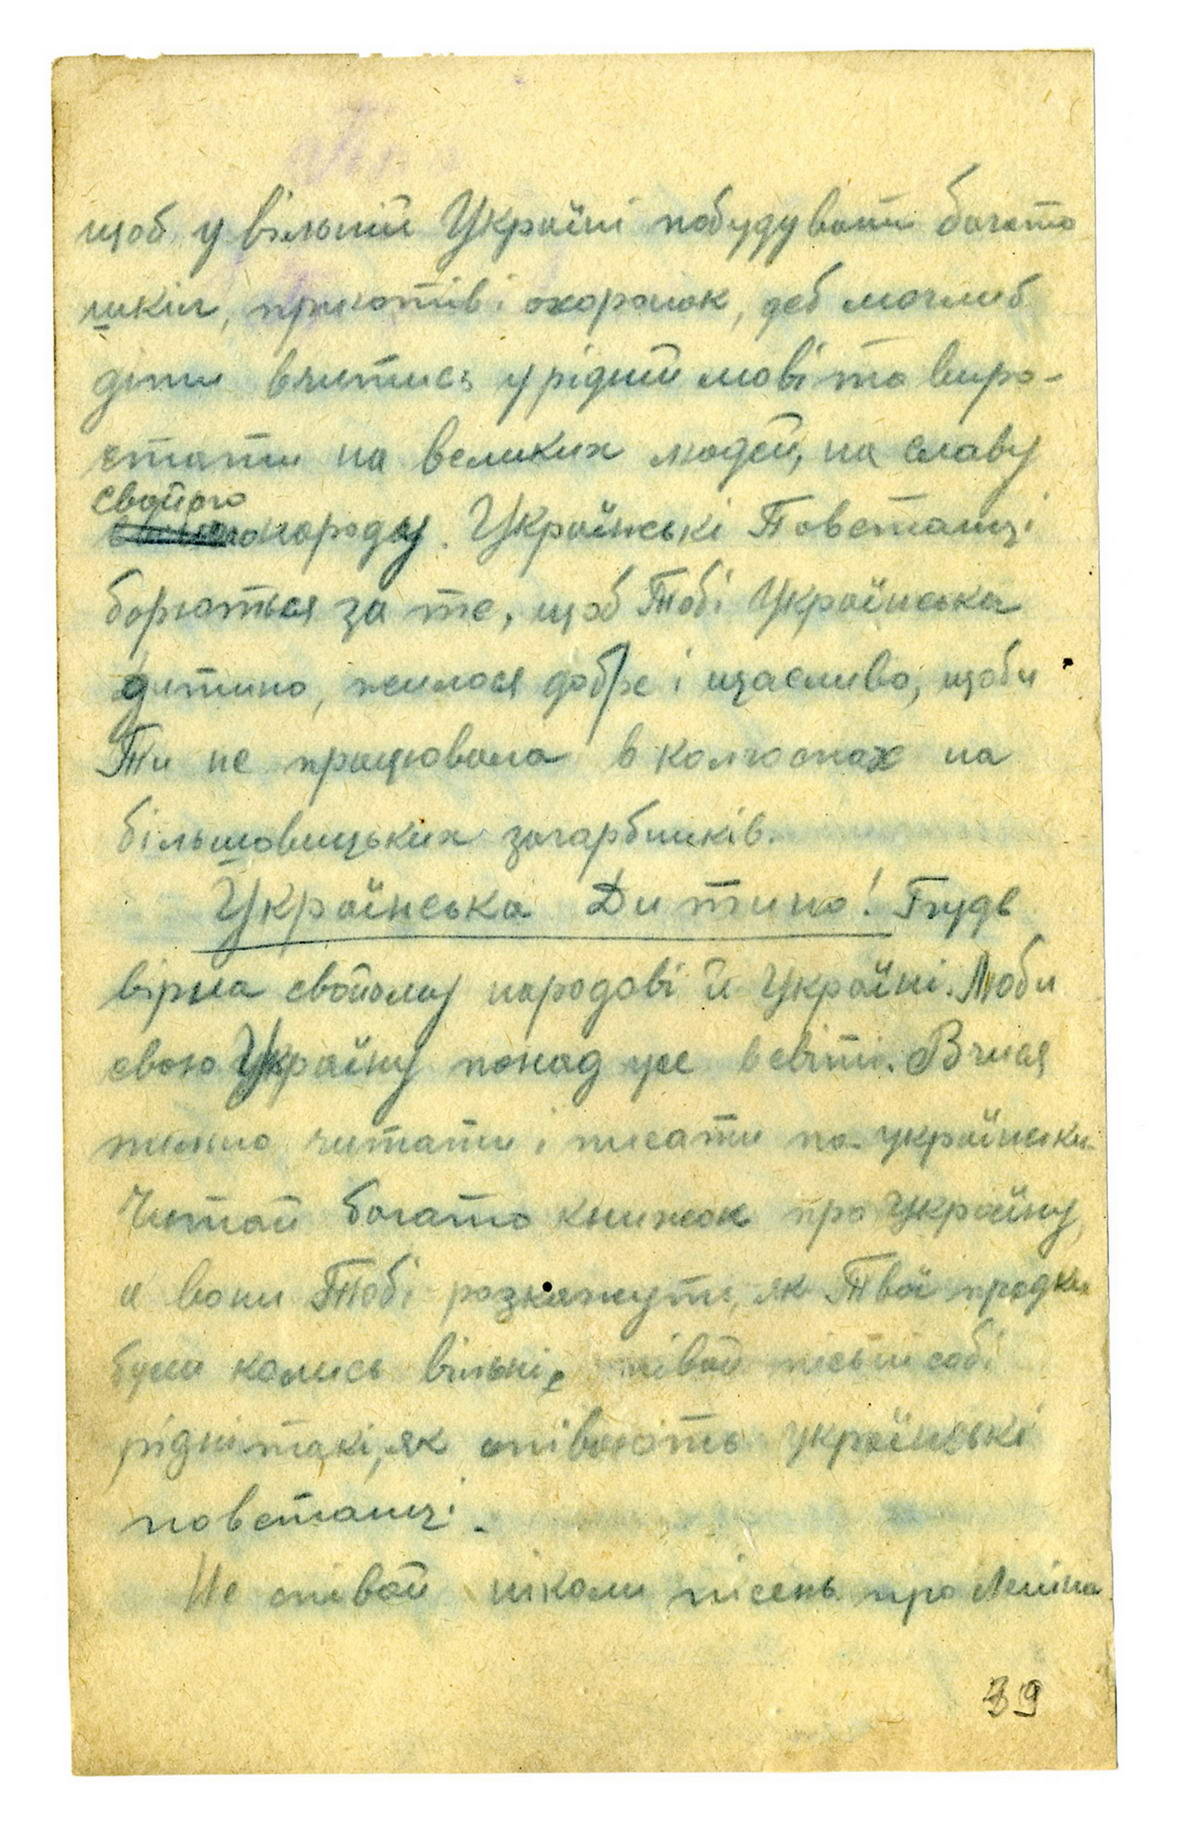 щоб у вільній Україні побудувати багато
шкіл, приютів і охоронок, деб моглиб
діти вчитись у рідній мові та виро-
стати на великих людей, на славу
свойого
народу. Українські Повстанці
борються за те, щоб Тобі Українська
дитино, жилося добре і щасливо, щоби
Ти не працювала в колгоспах на
більшовицьких загарбників.
Українська Дитино! Будь
вірна свойому народові й Україні. Люби
свою Україну понад усе в світі. Вчися
пильно читати і писати по-українськи.
Читай богато книжок про Україну,
а вони Тобі розкажуть, як Твої предки
були колись вільні, співай пісні собі
рідні такі, як співають українські
повстанці.
Не співай ніколи пісень про Леніна
39